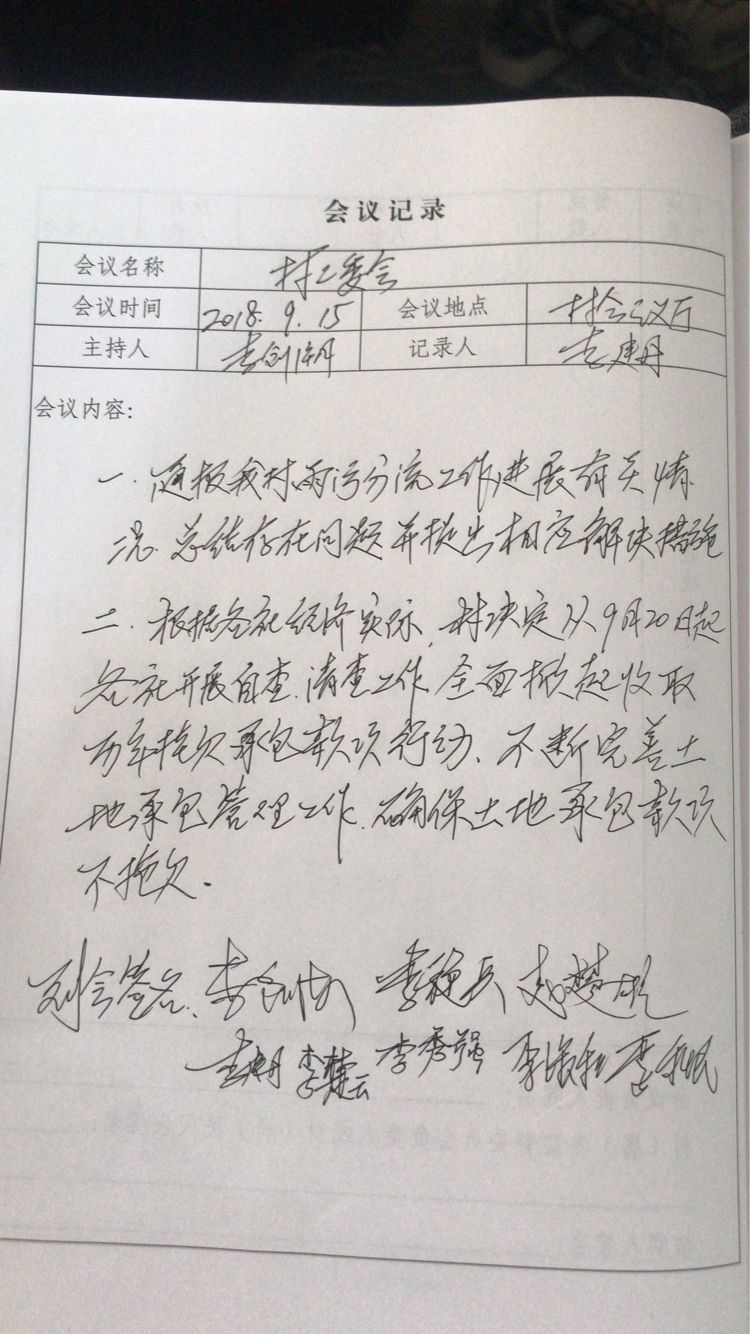 会议记录
会议名称 村工委会
会议时间 2018.9.15 会议地点 村会议厅
主持人 李剑 记录人 李建丹
会议内容:
一.通报我村雨污分流工作进展有关情
况.总结存在问题并提出相应解决措施
二.根据各社经济实际,村决定从9月20日起
各社开展自查.清查工作.全面掀起收取
历年拖欠承包款项行动、不断完善土
地承包管理工作.确保土地承包款项
不拖欠.
到会签名、李 李 赵楚
李 李楚云 李秀强 李 李